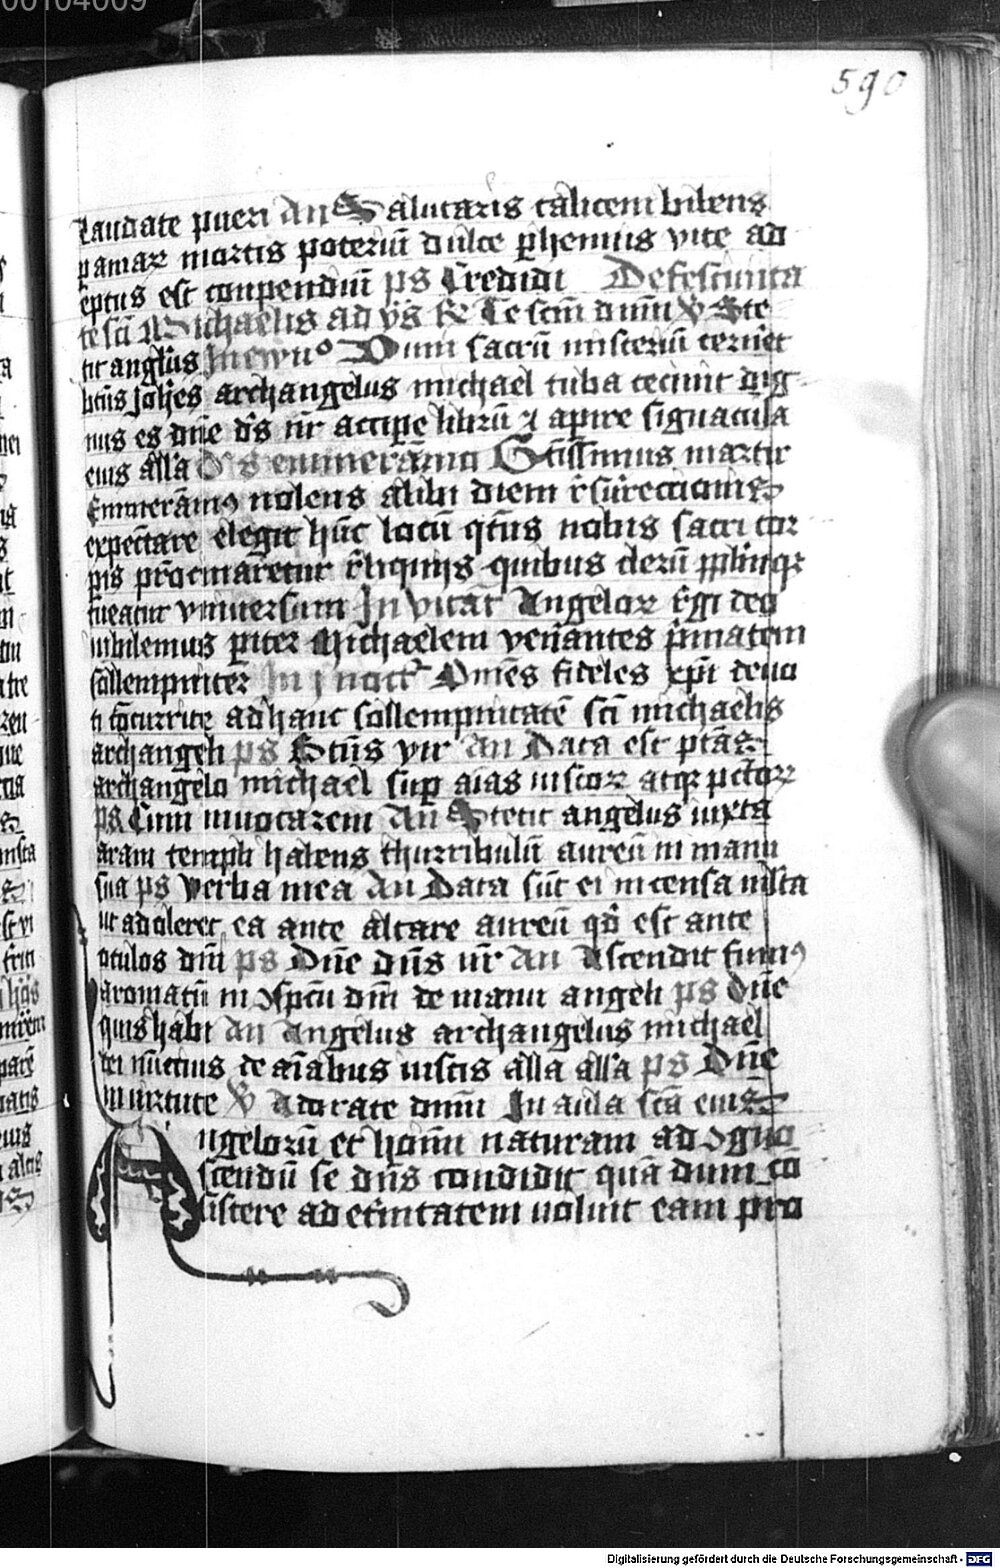 590
Laudate pueri An Salutaris calicem bibens
p amar mortis poteriū dulce perhennis vite ad
eptus est conpendiū ps Credidi De festiuita
te scī Michaelis ad vs R Te scm dnm V Ste
tit angl's In ewn° Dum sacrū misteriū cernēt
btūs Johēs archangelus michael tuba cecinit dig
nus es dn̄e ds nr accipe librū ⁊ apire signacula
eius all'a De s emmerāmo Sctissimus martir
Emmerām9 nolens alibi diem rsūrectionis
expectare elegit hūc locū qtn̄s nobis sacri cor
pis procuraretur rliquijs quibus clerū pplūqz
tueatur vniuersum Inuitat Angeloꝝ rēgi deo
iubilemus piter Michaelem venantes primatem
sollempniter In j noct' Omēs fideles xpi deuo
ti cōcurrite ad hanc sollempnitatē scī michaelis
archangeli ps Btūs vir An Data est ptās
archangelo michael sup aīas iustoꝝ atqz pctoꝝ
ps Cum inuocarem An Stetit angelus iuxta
aram templi habens thurribulū aureū in manu
sua ps Verba mea An Data sūt ei incensa multa
ut adoleret ea ante altare aureū qd est ante
oculos dnī ps Dn̄e dn̄s nr An Ascendit fum9
aromatū in ꝯspcū dnī de manu angeli ps Dn̄e
quis habit An Angelus archangelus michael
dei nūctius de aīabus iustis all'a all'a ps Dn̄e
in virtute V Adorate dnm In aula sctā eius
Angelorū et homīnū naturam ad ꝯgno
scendū se dn̄s condidit quā dum cō
sistere ad etn̄itatem uoluit eam pro
Digitalisierung gefördert durch die Deutsche Forschungsgemeinschaft - DFG